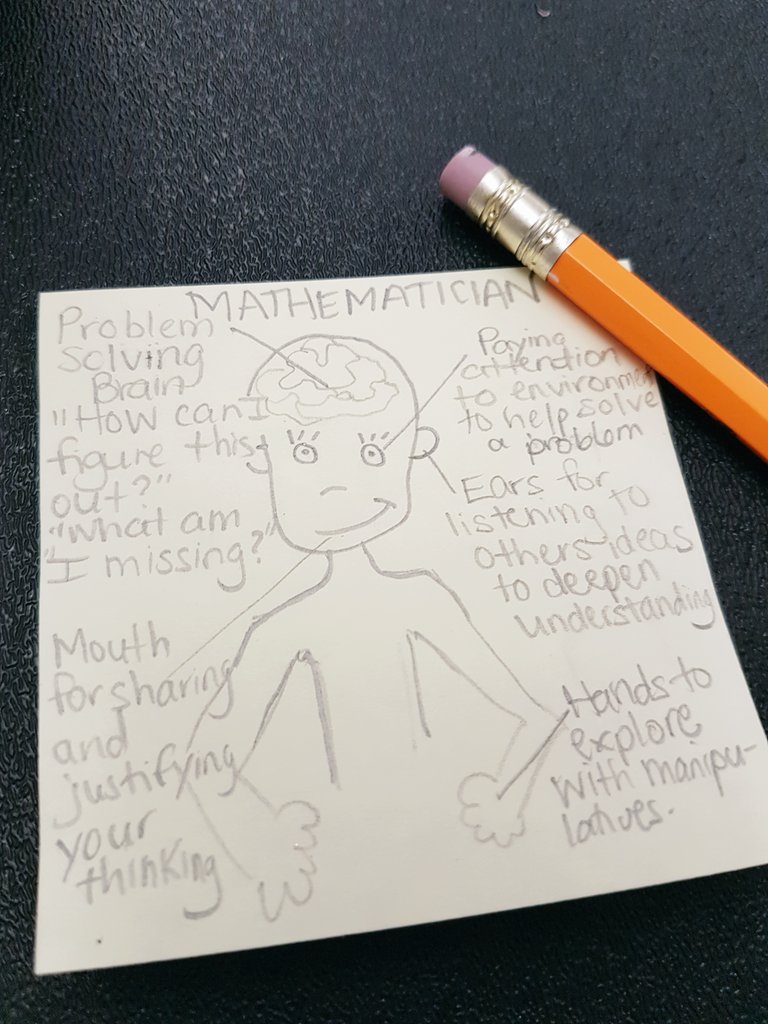 MATHEMATICIAN
Problem
solving
Brain
"How can I
figure this
out?"
"What am
I missing?"
Paying
attention
to environment
to help solve
a problem
Ears for
listening to
others ideas
to deepen
understanding
Mouth
for sharing
and
justifying
your
thinking
Hands to
explore
with manipu-
latives.